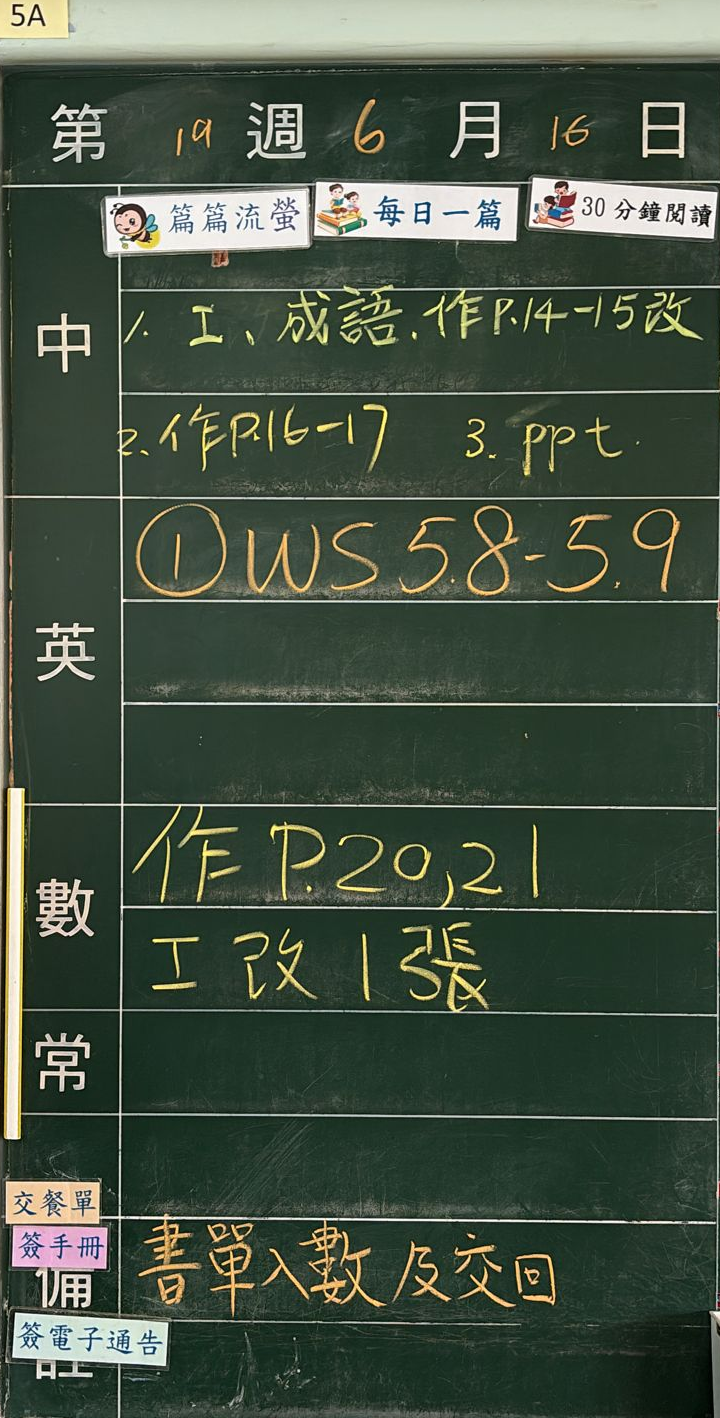 5A
第 19 週 6 月 16 日
篇篇流螢 每日一篇 30分鐘閱讀
中
1. 工、成語、作P.14-15改
2. 作P.16-17 3. ppt.
英
① WS 5.8-5.9
數
作 P.20,21
工改1張
常
交餐單
簽手冊
備註
書單入數及交回
簽電子通告